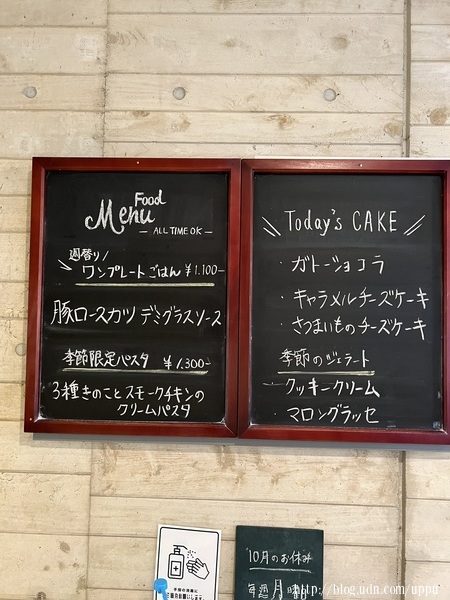 Food
Menu
— ALL TIME OK —
週替り!
ワンプレートごはん ¥1.100-
豚ロースカツ デミグラスソース
季節限定パスタ ¥1.300-
3種きのことスモークチキンの
クリームパスタ
Today's CAKE
・ガトーショコラ
・キャラメルチーズケーキ
・さつまいものチーズケーキ
季節のジェラート
・クッキークリーム
・マロングラッセ
10月のお休み
毎週 月
http://blog.udn.com/uppu